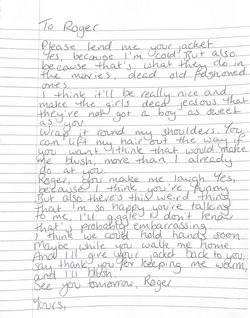 To Roger
Please lend me your jacket
Yes, because I'm cold But also
because that's what they do in
the movies, dead old fashioned
ones
I think it'll be really nice and
make the girls dead jealous that
they've not got a boy as sweet
as you
Wrap it round my shoulders. You
can lift my hair out the way if
you want I think that would make
me blush, more than I already
do at you
Roger, you make me laugh Yes,
because I think you're funny
But also there's this weird thing
that I'm so happy you're talking
to me, I'll giggle I don't know
that's probably embarrassing
I think we could hold hands soon
Maybe while you walk me home
And I'll give your jacket back to you,
say thank you for keeping me warm,
and I'll blush
See you tomorrow, Roger
Yours,